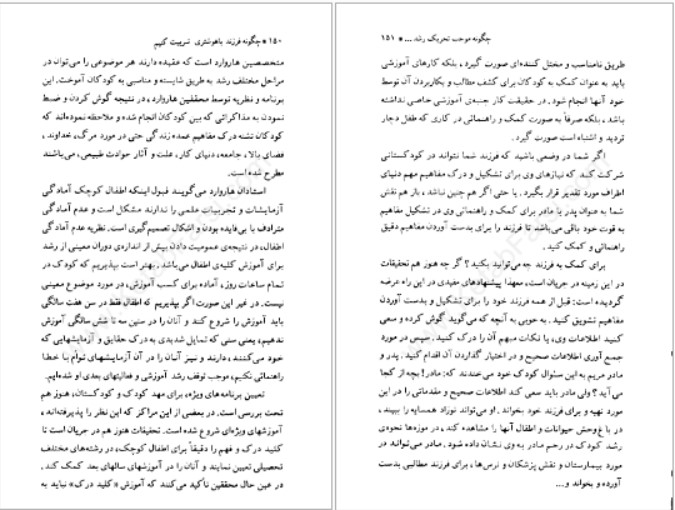 ۱۵۰ * چگونه فرزند باهوشتری تربیت کنیم
متخصصین هاروارد است که عقیده دارند هر موضوعی را می‌توان در
مراحل مختلف رشد به طریق شایسته و مناسبی به کودکان آموخت. این
برنامه و نظریه توسط محققین هاروارد، در نتیجه گوش کردن و ضبط
نمودن به مذاکراتی که بین کودکان انجام شده و ملاحظه نموده‌اند که
کودکان تشنه درک مفاهیم عمده زندگی حتی در مورد مرگ، خداوند،
فضای بالا، جامعه، دنیای کار، علت و آثار حوادث طبیعی، می‌باشند
مطرح شده است.
استادان هاروارد می‌گویند قبول اینکه اطفال کوچک آمادگی
آزمایشات و تجربیات علمی را ندارند مشکل است و عدم آمادگی
مترادف با بی‌فایده بودن و اشکال تصمیم‌گیری است. نظریه عدم آمادگی
اطفال، در نتیجه‌ی عمومیت دادن بیش از اندازه‌ی دوران معینی از رشد
برای آموزش کلیه‌ی اطفال می‌باشد. بهتر است بپذیریم که کودک در
تمام ساعات روز، آماده برای کسب آموزش، در مورد موضوع معینی
نیست. در غیر این صورت اگر بپذیریم که اطفال فقط در سن هفت سالگی
باید آموزش را شروع کند و آنان را در سنین سه تا شش سالگی آموزش
ندهیم، یعنی سنی که تمایل شدیدی به درک حقایق و آزمایشهایی که
خود می‌کنند، دارند و نیز آنان را در آن آزمایشهای توأم با خطا
راهنمائی نکنیم، موجب توقف رشد آموزشی و فعالیتهای بعدی او شده‌ایم.
تعیین برنامه‌های ویژه، برای مهد کودک و کودکستان، هنوز هم
تحت بررسی است. در بعضی از این مراکز که این نظر را پذیرفته‌اند،
آموزشهای ویژه‌ای شروع شده است. تحقیقات هنوز هم در جریان است تا
کلید درک و فهم را دقیقاً برای اطفال کوچک، در رشته‌های مختلف
تحصیلی تعیین نمایند و آنان را در آموزشهای سالهای بعد کمک کند.
در عین حال محققین تأکید می‌کنند که آموزش «کلید درک» نباید به
چگونه موجب تحریک رشد ... * ۱۵۱
طریق نامناسب و مختل کننده‌ای صورت گیرد، بلکه کارهای آموزشی
باید به عنوان کمک به کودکان برای کشف مطالب و بکاربردن آن توسط
خود آنها انجام شود. در حقیقت کار جنبه‌ی آموزشی خاصی نداشته
باشد، بلکه صرفاً به صورت کمک و راهنمائی در کاری که طفل دچار
تردید و اشتباه است صورت گیرد.
اگر شما در وضعی باشید که فرزند شما نتواند در کودکستانی
شرکت کند که نیازهای وی برای تشکیل و درک مفاهیم مهم دنیای
اطراف مورد تقدیر قرار بگیرد. یا حتی اگر هم چنین نباشد، باز هم نقش
شما به عنوان پدر یا مادر برای کمک و راهنمائی وی در تشکیل مفاهیم
به قوت خود باقی می‌باشد تا فرزند را برای بدست آوردن مفاهیم دقیق
راهنمائی و کمک کنید.
برای کمک به فرزند چه می‌توانید بکنید؟ گر چه هنوز هم تحقیقات
در این زمینه در جریان است، معهذا پیشنهادهای مفیدی در این راه عرضه
گردیده است: قبل از همه فرزند خود را برای تشکیل و بدست آوردن
مفاهیم تشویق کنید. به خوبی به آنچه که می‌گوید گوش کرده و سعی
کنید اطلاعات وی، یا نکات مبهم آن را درک کنید. سپس در مورد
جمع آوری اطلاعات صحیح و در اختیار گذاردن آن اقدام کنید. پدر و
مادر مریم به این سئوال کودک خود می‌خندند که: مادر! بچه از کجا
می‌آید؟ ولی مادر باید سعی کند اطلاعات صحیح و مقدماتی را در این
مورد تهیه و برای فرزند خود بخواند. او می‌تواند نوزاد همسایه را ببیند،
در باغ‌وحش حیوانات و اطفال آنها را مشاهده کند، در موزه‌ها نحوه‌ی
رشد کودک در رحم مادر به وی نشان داده شود. مادر می‌تواند در
مورد بیمارستان و نقش پزشکان و نرس‌ها، برای فرزند مطالبی بدست
آورده و بخواند و...